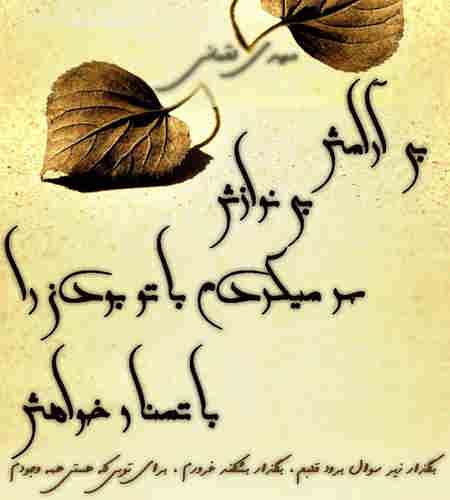 مهدی فشانی
پر آرامش
پر نوازش
سر میکردم با تو بودن را
با تمنا و خواهش
بگذار زیر سوال برود قلبم ، بگذار بشکند غرورم ، برای تویی که هستی همه وجودم